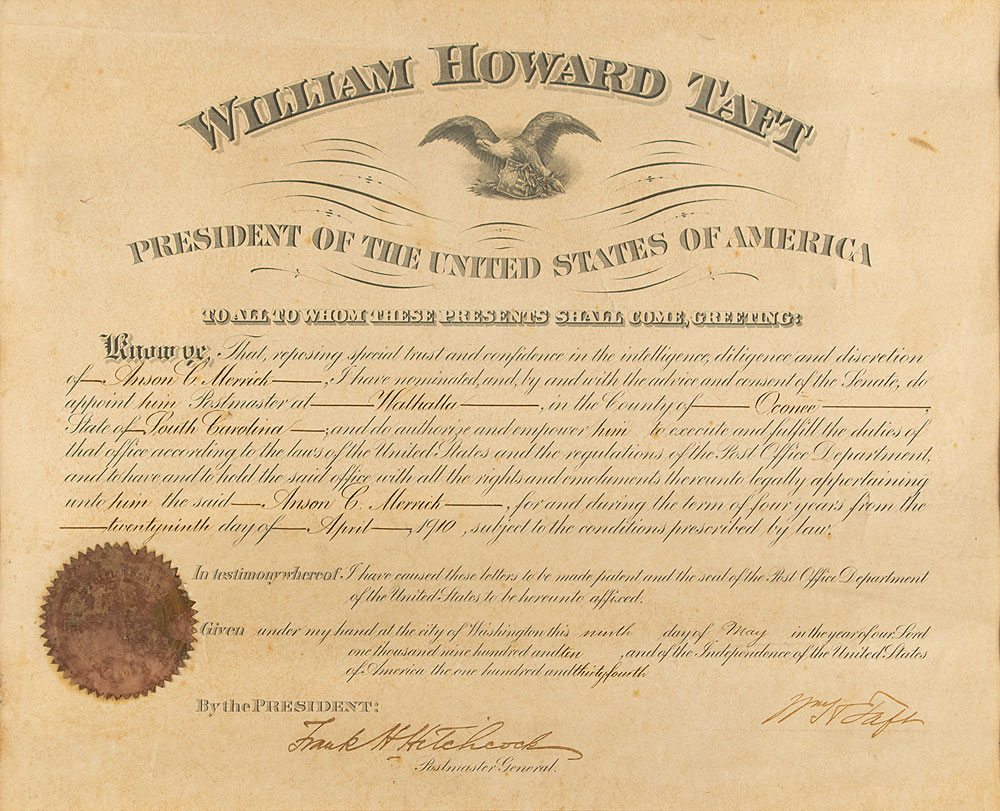 WILLIAM HOWARD TAFT
PRESIDENT OF THE UNITED STATES OF AMERICA
TO ALL TO WHOM THESE PRESENTS SHALL COME, GREETING:
Know ye, That, reposing special trust and confidence in the intelligence, diligence and discretion
of Anson C. Merrick, I have nominated, and, by and with the advice and consent of the Senate, do
appoint him Postmaster at Walhalla, in the County of Oconee,
State of South Carolina; and do authorize and empower him to execute and fulfill the duties of
that office according to the laws of the United States and the regulations of the Post Office Department,
and to have and to hold the said office with all the rights and emoluments thereunto legally appertaining
unto him the said Anson C. Merrick, for and during the term of four years from the
twentyninth day of April, 1910, subject to the conditions prescribed by law.
In testimony whereof I have caused these letters to be made patent and the seal of the Post Office Department
of the United States to be hereunto affixed.
Given under my hand at the city of Washington this ninth day of May in the year of our Lord
one thousand nine hundred and ten, and of the Independence of the United States
of America the one hundred and thirtyfourth
By the PRESIDENT:
Wm H Taft
Frank H Hitchcock
Postmaster General.